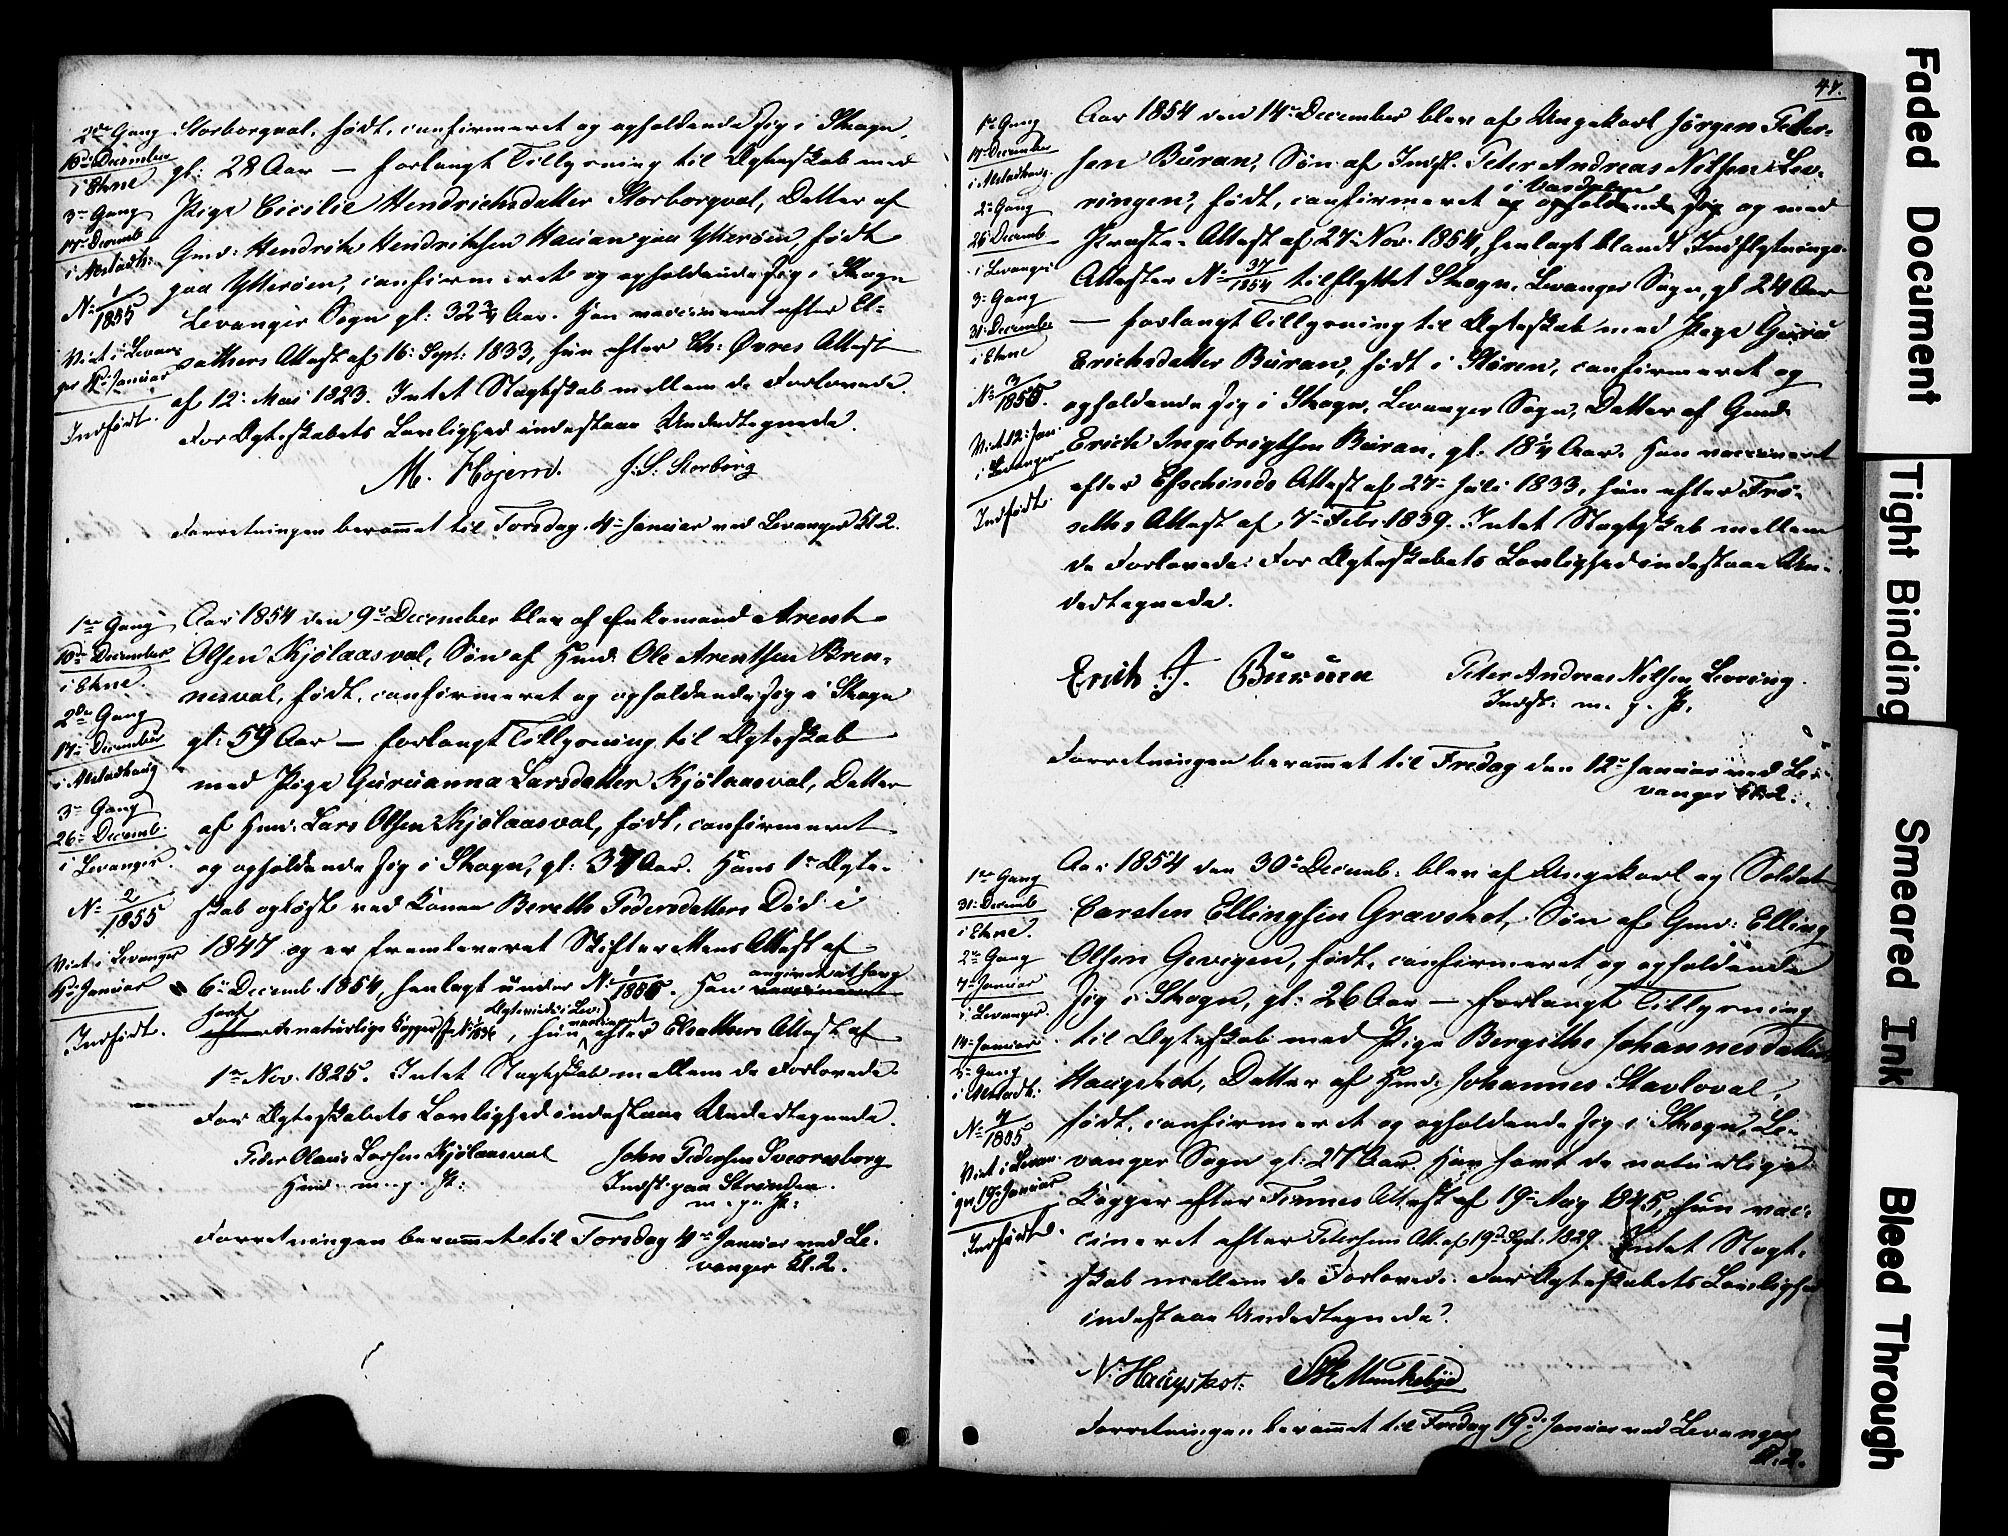 2de Gang
10de December
i Ekne
3die Gang
17de Decemb.
i Alstadh:
No 1/1855
Viet i Levanger 4de Januar
Indført.
Storborgval, født, confirmeret og opholdende sig i Skogn,
gl: 28 Aar — forlangt Tillysning til Ægteskab med
Pige Cicilie Hendrichsdatter Storborgval, Datter af
Gmd: Hendrik Hendriksen paa Ytterøen, født
paa Ytterøen, confirmeret og opholdende sig i Skogn
Levanger Sogn gl: 32 3/4 Aar. Han vaccineret efter El-
sathers Attest af 16: Sept: 1833, hun efter Chr. Øvres Attest
af 12: Mai 1823. Intet Slagtskab mellem de Forlovede.
For Ægteskabets Lovlighed indestaae Undertegnede.
M. Hojem. J: S: Storborg
Forretningen berammet til Torsdag 4de Januar ved Levanger Kl. 2.
1ste Gang
10de December
i Ekne.
2den Gang
17de December
i Alstadhaug
3die Gang
26de Decemb:
i Levanger.
No 2/1855
Viet i Levanger
4de Januar
Indført.
Aar 1854 den 9de December blev af Enkemand Arent
Olsen Kjølaasval, Søn af Hmd: Ole Arentsen Bren-
nesval, født, confirmeret og opholdende sig i Skogn
gl: 59 Aar — forlangt Tillysning til Ægteskab
med Pige Guruanna Larsdatter Kjølaasval, Datter
af Hmd: Lars Olsen Kjølaasval, født, confirmeret
og opholdende sig i Skogn, gl: 37 Aar. Hans 1ste Ægte-
skab opløst ved Konen Berethe Pedersdatters Død i
1847 og er fremleveret Skifterettens Attest af
6te Decemb. 1854, henlagt under No 1/1855. Han angivet at have
havt de naturlige Kopper, hun vaccineret efter Elsathers Attest af
1ste Nov. 1825. Intet Slagtskab mellem de Forlovede.
For Ægteskabets Lovlighed indestaae Undertegnede.
Peder Olaus Larsen Kjølaasval John Pedersen Sverresborg
Hmd. m. p. P: Indst: paa Stranden.
m. p. P:
Forretningen berammet til Torsdag 4de Januar ved Le-
vanger Kl. 2.
47.
1ste Gang
17de December
i Alstadhaug.
2den Gang
26de Decemb
i Levanger
3die Gang
31te December
i Ekne
No 3/1855.
Viet 12: Jan.
i Levanger
Indført.
Aar 1854 den 14de December blev af Ungekarl Jørgen Peter-
sen Buran, Søn af Indst. Peter Andreas Nilsen Lev-
ringen, født, confirmeret i Værdalen og opholdende sig og med
Præste-Attest af 27: Nov. 1854, henlagt blandt Indflytnings-
Attester No 37/1854 tilflyttet Skogn, Levanger Sogn, gl 24 Aar
— forlangt Tillysning til Ægteskab med Pige Guru
Erichsdatter Buran, født i Støren, confirmeret og
opholdende sig i Skogn, Levanger Sogn, Datter af Gmd:
Erich Ingebrigtsen Buran, gl. 18 1/4 Aar. Han vaccineret
efter Eschinds Attest af 27de Juli 1833, hun efter Frø-
seths Attest af 7de Febr. 1839. Intet Slagtskab mellem
de Forlovede. For Ægteskabets Lovlighed indestaae Un-
dertegnede.
Erich J. Buruen Peter Andreas Nilsen Levring.
Indst: m. p. P.
Forretningen berammet til Fredag den 12te Januar ved Le-
vanger Kl. 2.
1ste Gang
31: Decemb
i Ekne.
2den Gang
7de Januar
i Levanger
14de Januar
3die Gang
i Alstadh:
No 4/1855
Viet i Levan-
ger 19: Januar
Indført.
Aar 1854 den 30te Decemb. blev af Ungekarl og Soldat
Carsten Ellingsen Gravskot, Søn af Gmd: Elling
Olsen Gevigen, født, confirmeret og opholdende
sig i Skogn, gl: 26 Aar — forlangt Tillysning
til Ægteskab med Pige Bergithe Johannesdatter
Haugskot, Datter af Hmd: Johannes Stavloval,
født, confirmeret og opholdende sig i Skogn, Le-
vanger Sogn gl: 27 Aar. Han havt de naturlige
Kopper efter Finnes Attest af 19de Aug 1845, hun vac-
cineret efter Petersens Att. af 19de Sept. 1829. Intet Slagt-
skab mellem de Forlovede. For Ægteskabets Lovlighed
indestaae Undertegnede.
N: Haugskot: Munkebye
Forretningen berammet til Fredag 19de Januar ved Levanger
Kl. 2.
Faded Document
Tight Binding
Smeared Ink
Bleed Through